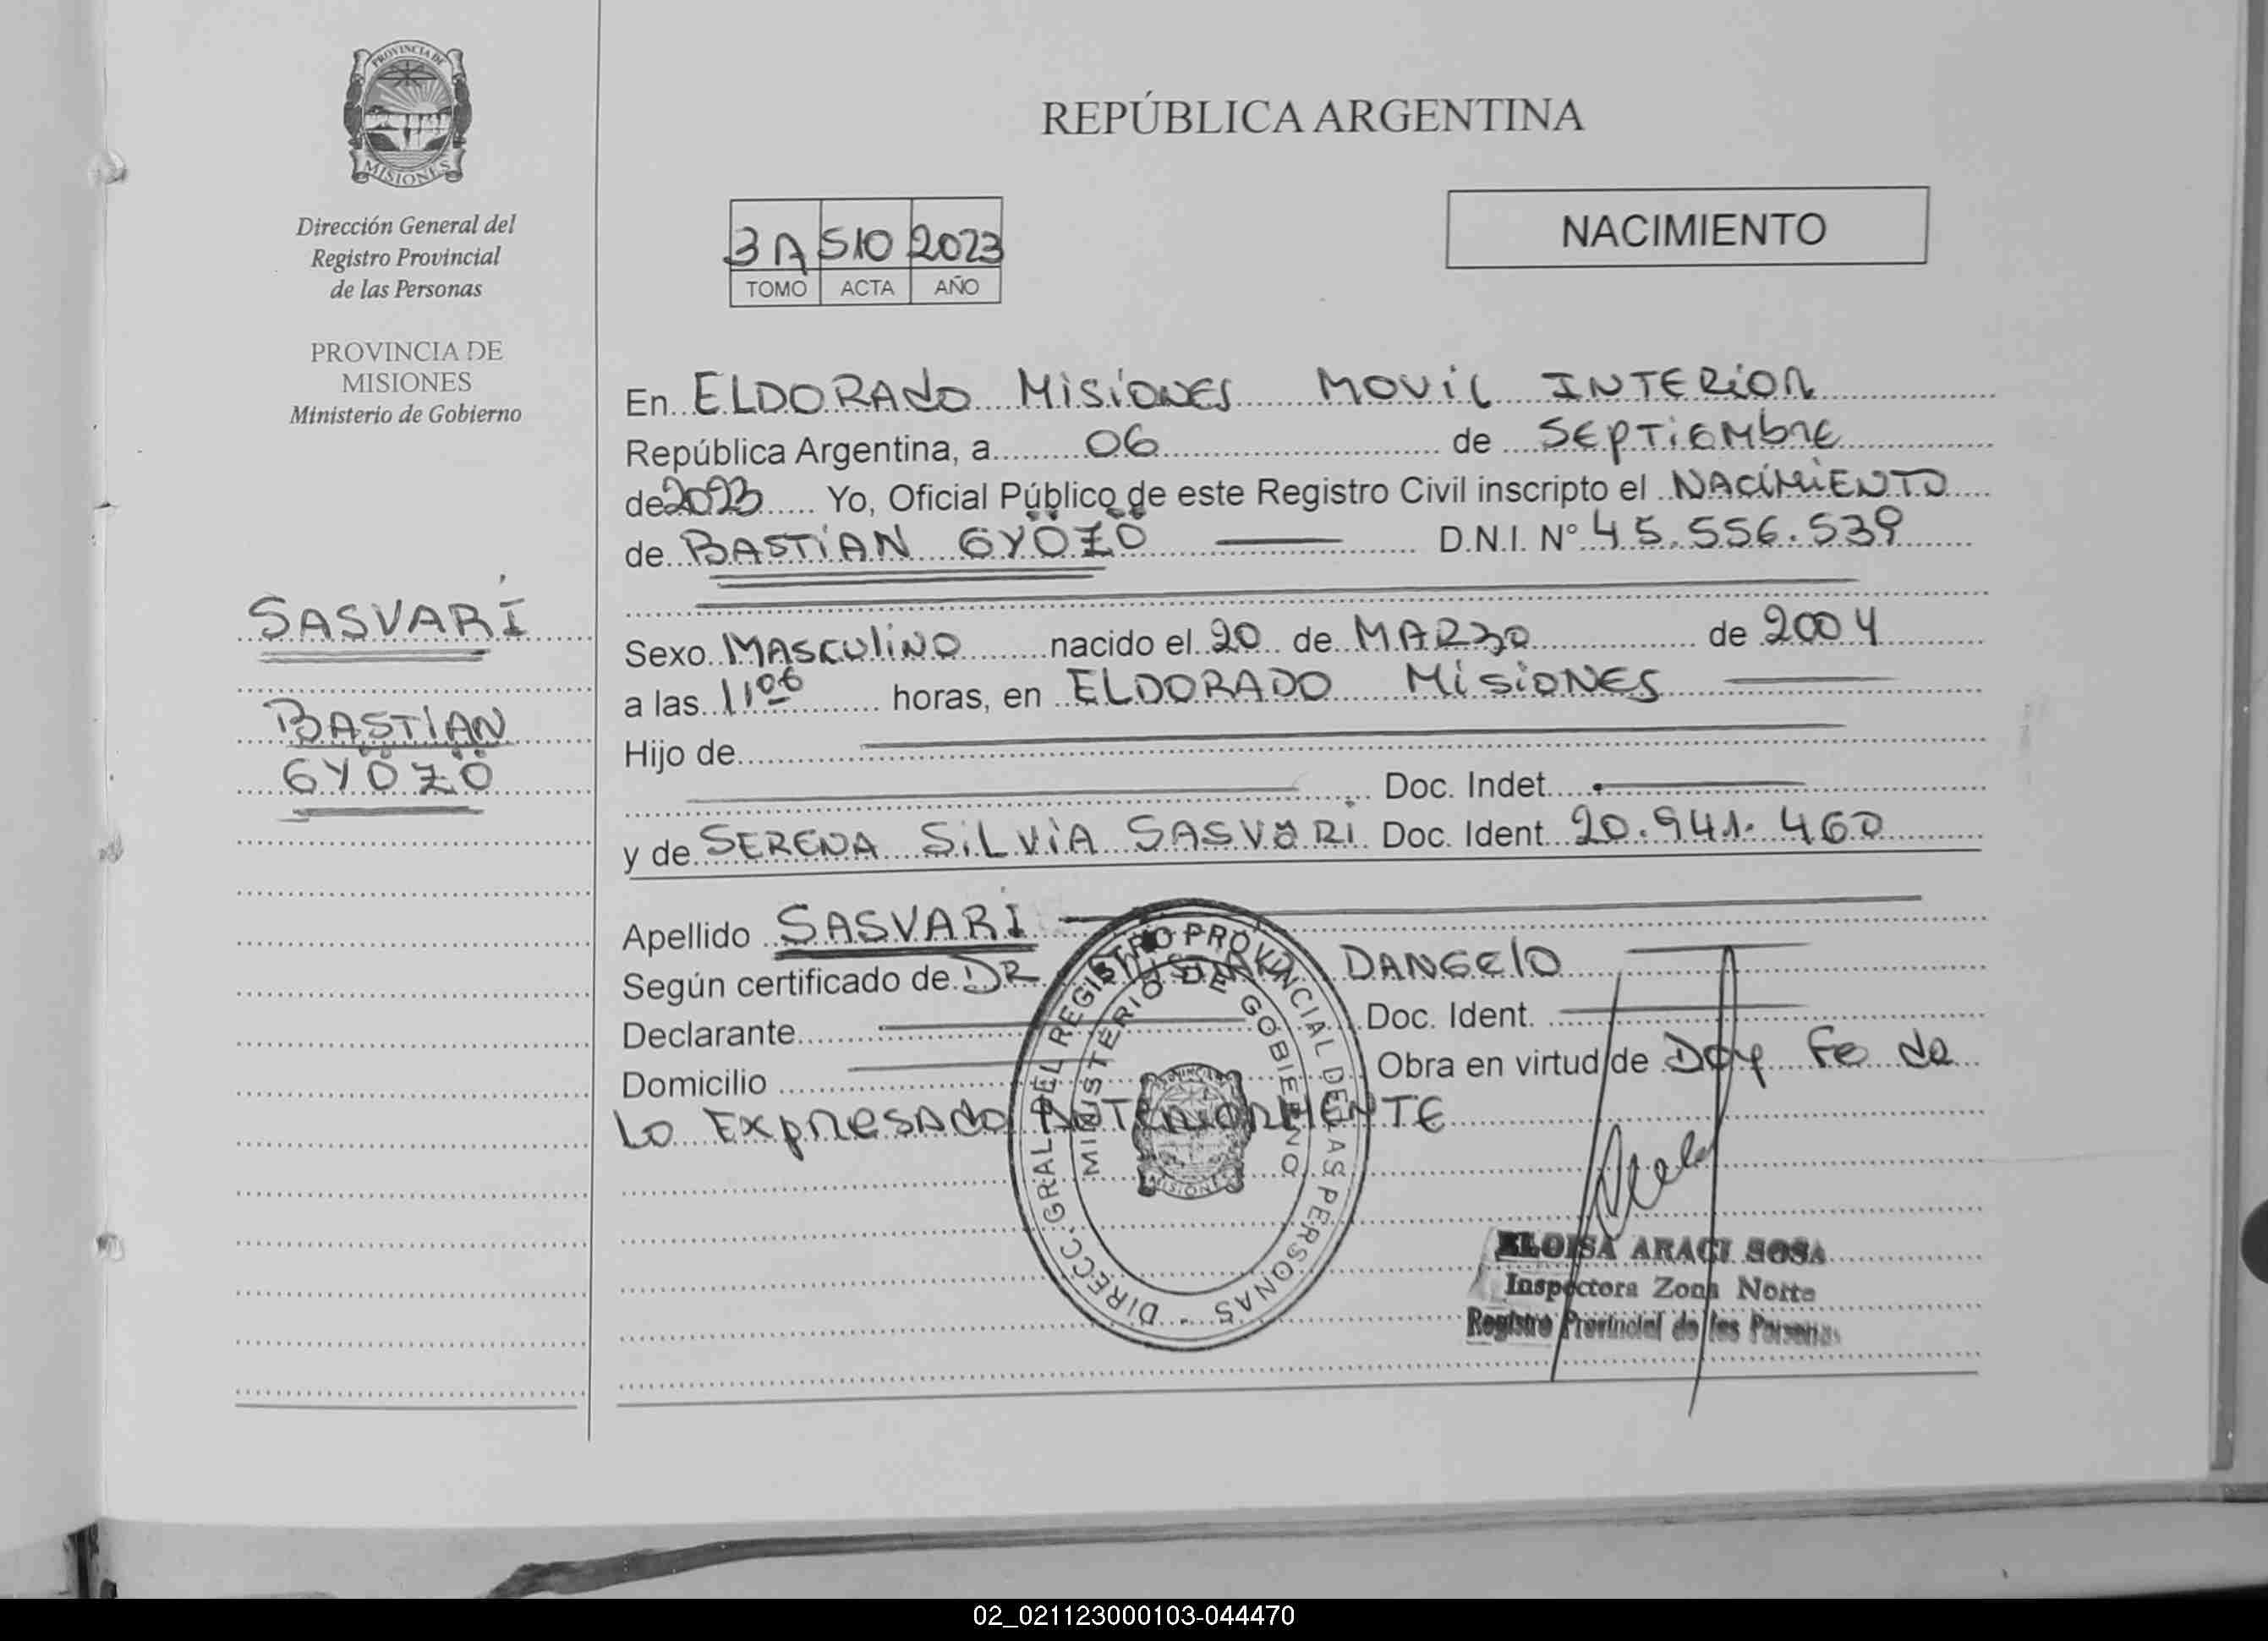 PROVINCIA DE
MISIONES
Dirección General del
Registro Provincial
de las Personas
PROVINCIA DE
MISIONES
Ministerio de Gobierno
SASVARÍ
BASTIAN
GYÖZÖ
REPÚBLICA ARGENTINA
NACIMIENTO
3A 510 2023
TOMO ACTA AÑO
En ELDORADO MISIONES MOVIL INTERIOR
República Argentina, a 06 de SEPTIEMBRE
de 2023 Yo, Oficial Público de este Registro Civil inscripto el NACIMIENTO
de BASTIAN GYÖZÖ D.N.I. N° 45.556.539
Sexo MASCULINO nacido el 20 de MARZO de 2004
a las 11 06 horas, en ELDORADO MISIONES
Hijo de
Doc. Indet.
y de SERENA SILVIA SASVARI Doc. Ident. 20.941.460
Apellido SASVARÍ
Según certificado de DR DANGELO
Declarante Doc. Ident.
Domicilio Obra en virtud de Doy Fe de
Lo EXPRESADO ANTERIORMENTE
DIRECC. GRAL DEL REGISTRO PROVINCIAL DE LAS PERSONAS -
MINISTERIO DE GOBIERNO
MISIONES
ELOISA ARACI SOSA
Inspectora Zona Norte
Registro Provincial de las Personas
02_021123000103-044470